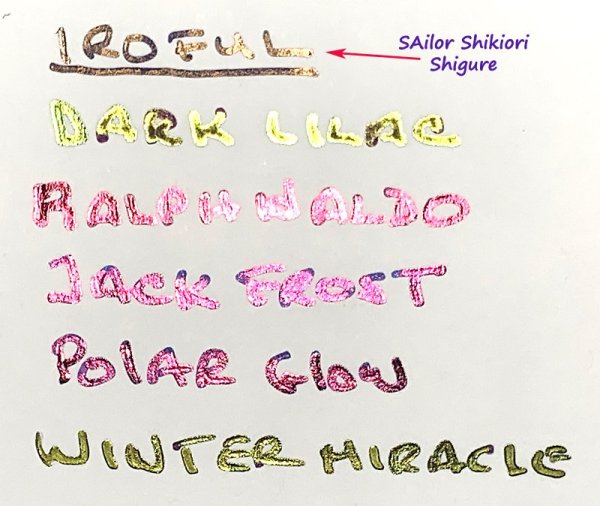 IROFUL
SAilor Shikiori
Shigure
DARK LILAC
RALPH WALDO
JACK FROST
POlAR GlOW
WINTER MIRACLE